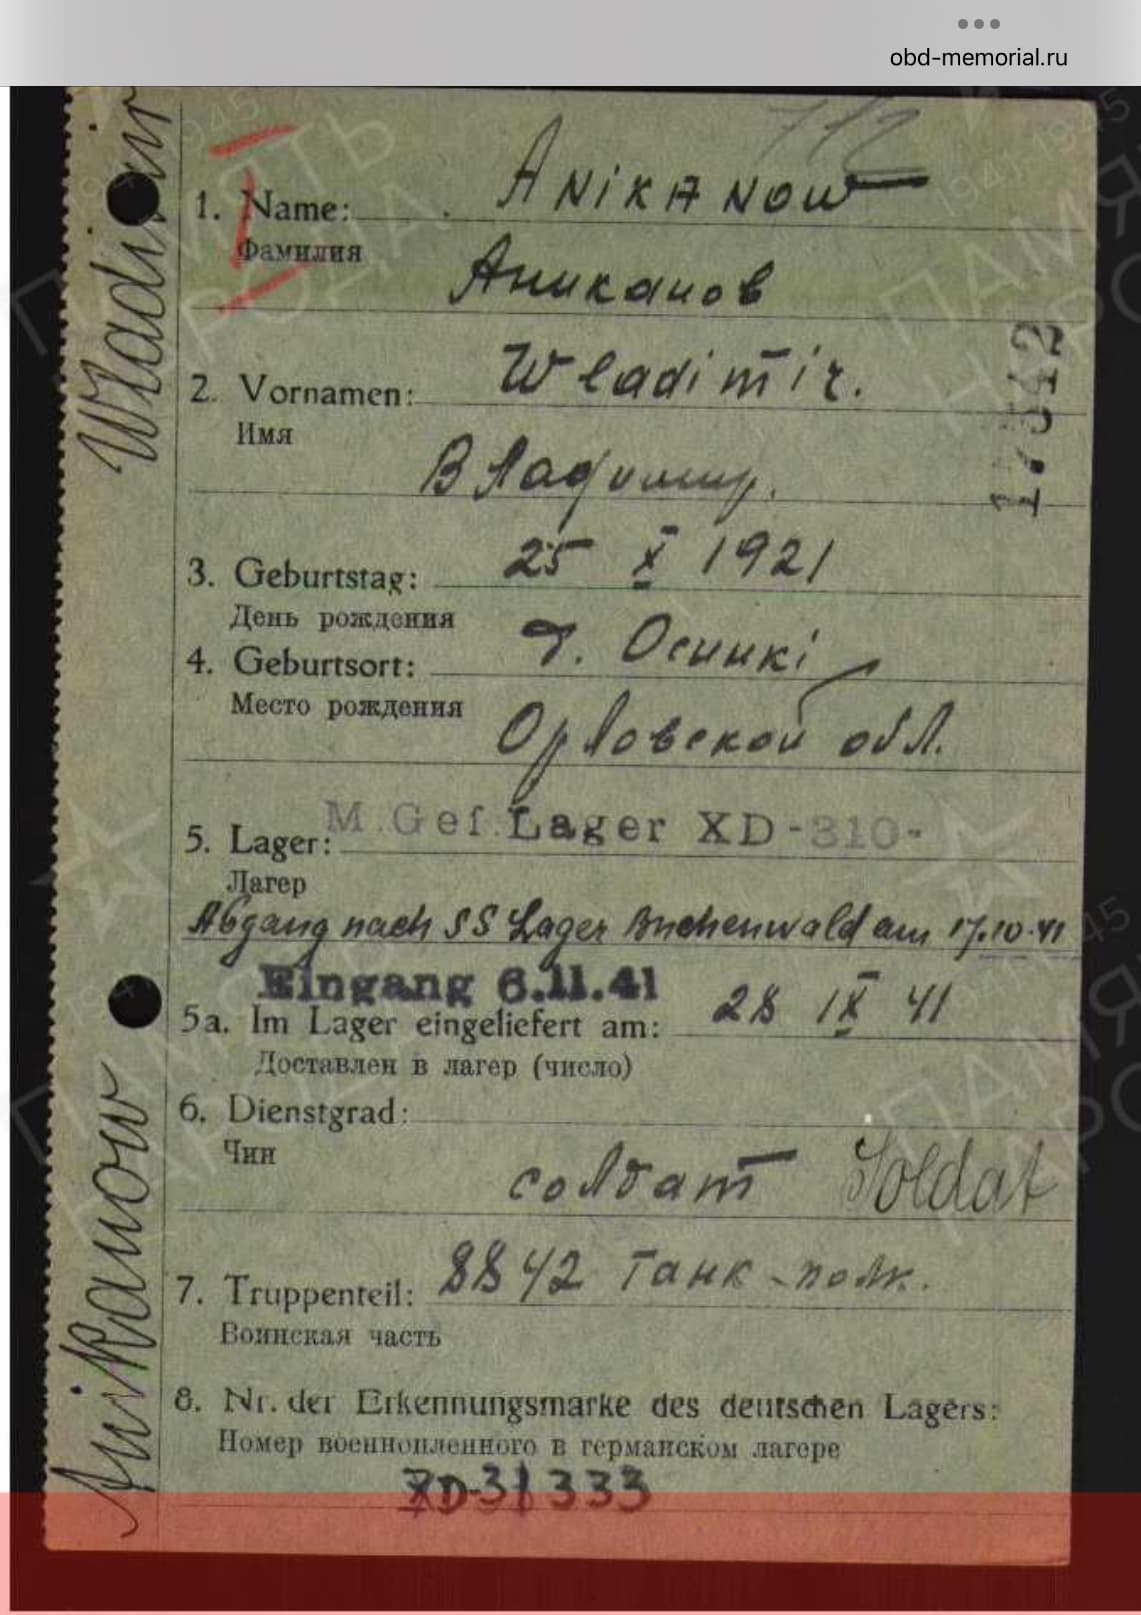 obd-memorial.ru
712
1. Name: ANiKANOW
Фамилия
Аниканов
2. Vornamen: Wladimir.
Имя
Владимир.
3. Geburtstag: 25 X 1921
День рождения
4. Geburtsort: д. Осинкi
Место рождения
Орловской обл.
5. Lager: M.Gef.Lager XD-310-
Лагер
Abgang nach SS Lager Buchenwald am 17.10.41
Eingang 6.11.41
5a. Im Lager eingeliefert am: 28 IX 41
Доставлен в лагер (число)
6. Dienstgrad:
Чин
солдат Soldat
7. Truppenteil: 8842 танк-полк.
Воинская часть
8. Nr. der Erkennungsmarke des deutschen Lagers:
Номер военнопленного в германском лагере
XD-31333
Anikanow Wladimir
ПАМЯТЬ
НАРОДА
1941-1945